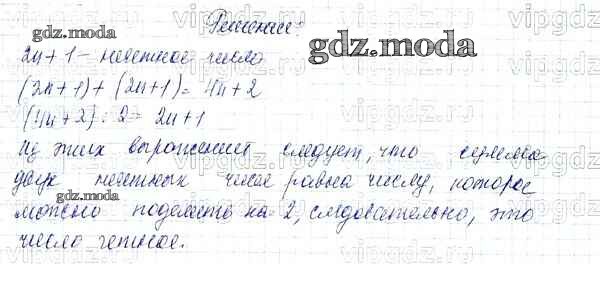 Решение:
gdz.moda
2n+1 – нечетное число
gdz.moda
(2n+1)+(2n+1)=4n+2
(4n+2):2=2n+1
Из этих выражений следует, что сумма
двух нечетных чисел равна числу, которое
gdz.moda
можно поделить на 2, следовательно, это
число четное.